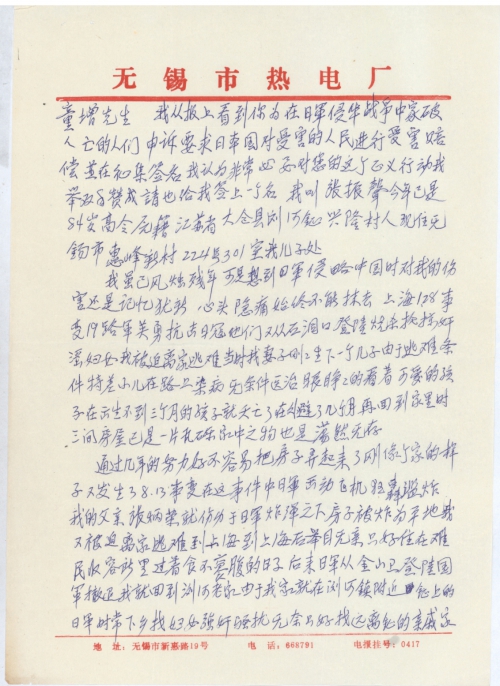 无锡市热电厂
童增先生 我从报上看到你为在日军侵华战争中家破
人亡的人们申诉要求日本国对受害的人民进行受害赔
偿并在征集签名我认为非常必要对您的这个正义行动我
举双手赞成請也给我签上一个名 我叫张振声今年已是
84岁高令 原籍江苏省太仓县浏河鎮兴隆村人现住无
锡市惠峰新村224号301室我儿子处
我虽已风烛残年可是想到日軍侵略中国时对我的伤
害还是记忆犹新 心头隐痛始终不能抹去 上海128事
变19路軍英勇抗击日冦他们又从石洞口登陸烧杀抢掠奸
淫妇女我被迫离家逃难当时我妻子刚生下一个儿子由于逃难条
件特差小儿在路上染病无条件医治眼睁睁的看着可爱的孩
子在出生不到三个月的孩子就夭亡了在外避了几个月再回到家里时
三间房屋已是一片瓦砾家中之物也是荡然无存
通过几年的努力好不容易把房子弄起来了刚像个家的样
子又发生了8.13事变在这事件中日軍出动飞机狂轰滥炸
我的父亲张炳荣就伤劢于日軍炸弹之下房子被炸为平地我
又被迫离家逃难到上海到上海后举目无亲只好住在难
民收容所里过着食不裹腹的日子后来日軍从金山卫登陸国
軍撤退我就回到浏河老家由于我家就在浏河鎮附近 鎮上的
日軍时常下乡找妇女强奸 无奈只好找远离鎮的亲戚家
地 址：无锡市新惠路19号 电 话：668791 电报挂号：0417